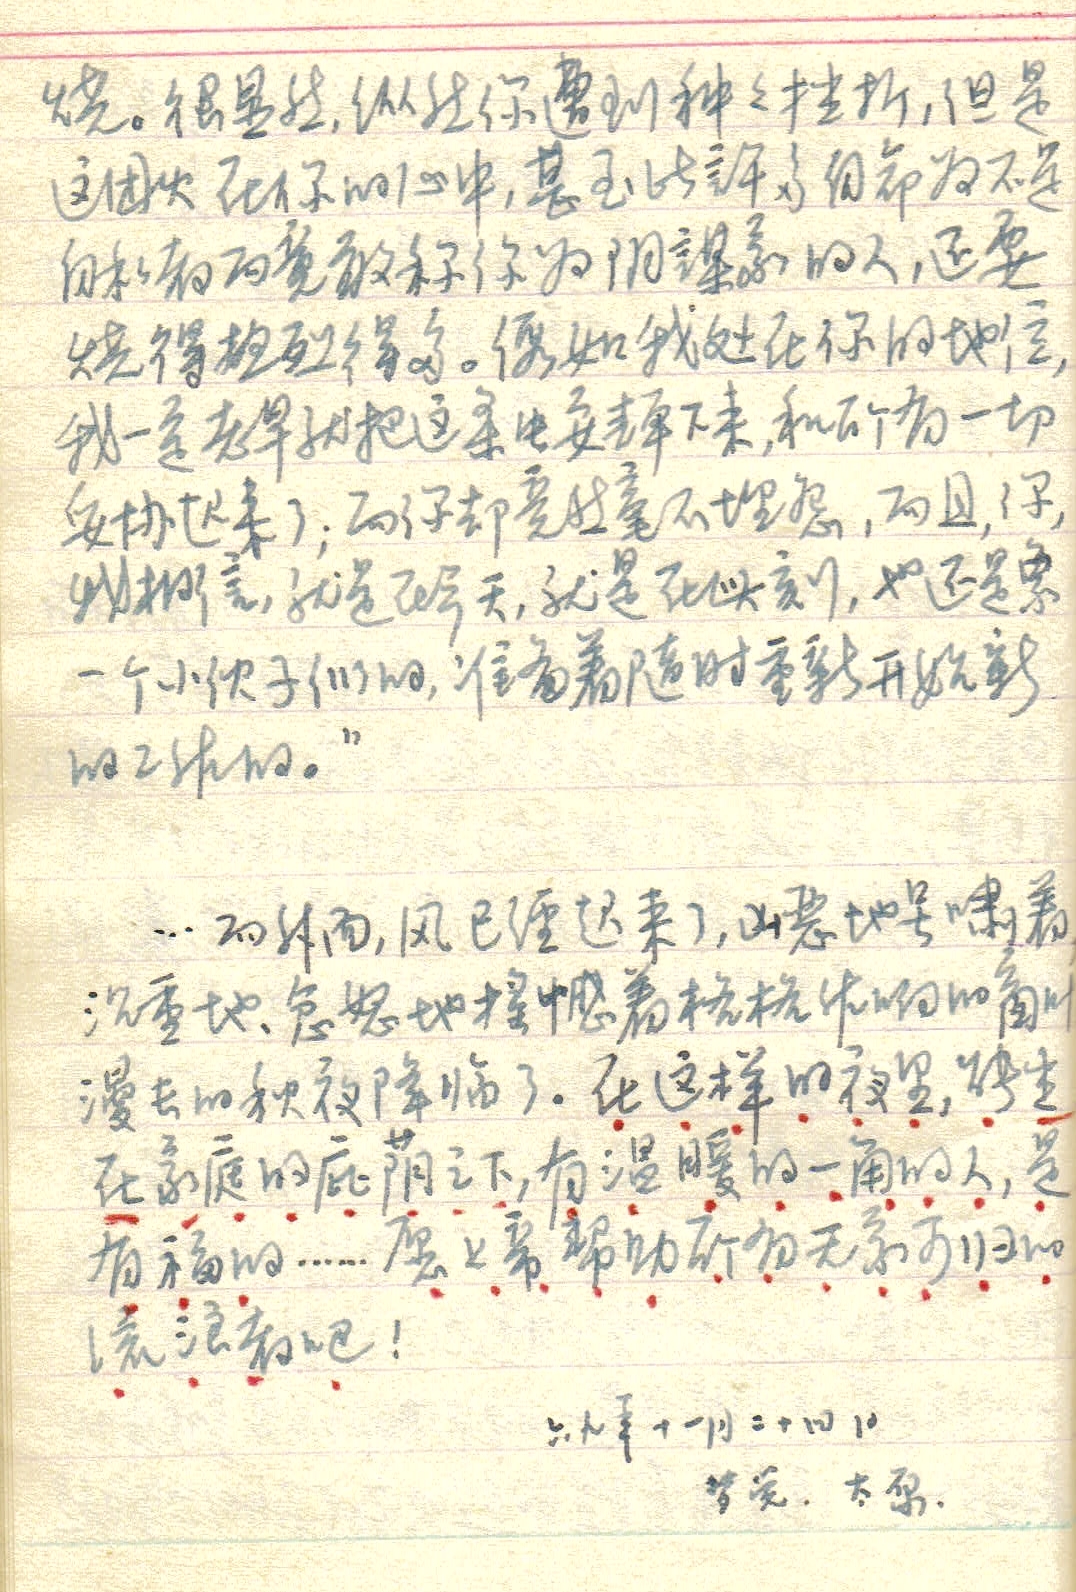 烧。很显然,纵然你遭到种々挫折,但是
这团火在你的心中,甚至比許多自命为不是
自私者而竟敢称你为阴謀家的人,还要
烧得熱烈得多。假如我处在你的地位,
我一定老早就把这条虫安葬下来,和所有一切
妥协起来了;而你却竟然毫不埋怨,而且,你,
我相信,就是在今天,就是在此刻,也还是象
一个小伙子们的,准备着随时重新开始新
的工作的。”
… 而外面,风已經起来了,凶惡地号啸着,
沉重地、忿怒地摇撼着格格作响的窗叶
漫长的秋夜降临了。在这样的夜里,能坐
在家庭的庇荫之下,有温暖的一角的人,是
有福的……愿上帝帮助所有无家可归的
流浪者吧!
六九年十一月二十四日
太原.